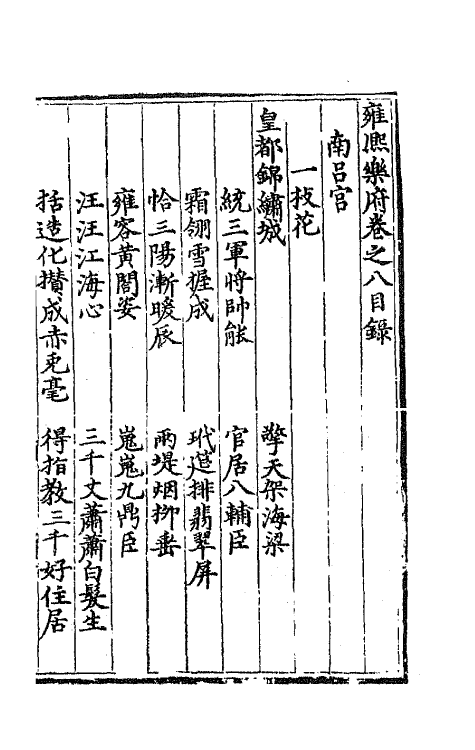 雍熈樂府卷之八目錄
南呂宫
一枝花
皇都錦繡城　擎天架海梁
統三軍將帥能　官居八輔臣
霜翎雪握成　玳筵排翡翠屏
恰三陽漸暖辰　兩堤烟柳垂
雍容黄閣姿　嵬嵬九鼎臣
汪汪江海心　三千丈蕭蕭白髮生
括造化攅成赤兎毫　得指教三千好住居